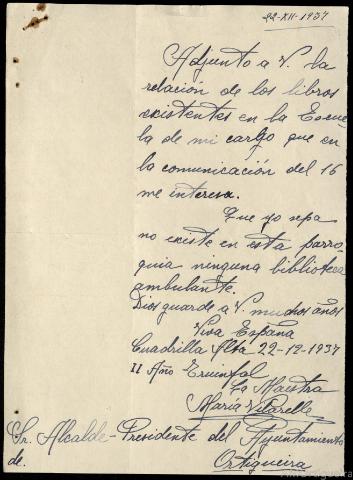 22-XII-1937
Adjunto a V. la
relación de los libros
existentes en la Escue
la de mi cargo que en
la comunicación del 16
me interesa.
Que yo sepa
no existe en esta parro-
quia ninguna biblioteca
ambulante.
Dios guarde a V. muchos años
Viva España
Cuadrilla Alta 22-12-1937
II Año Triunfal
La Maestra
María Vilarelle
Sr. Alcalde-Presidente del Ayuntamiento
de. Ortigueira